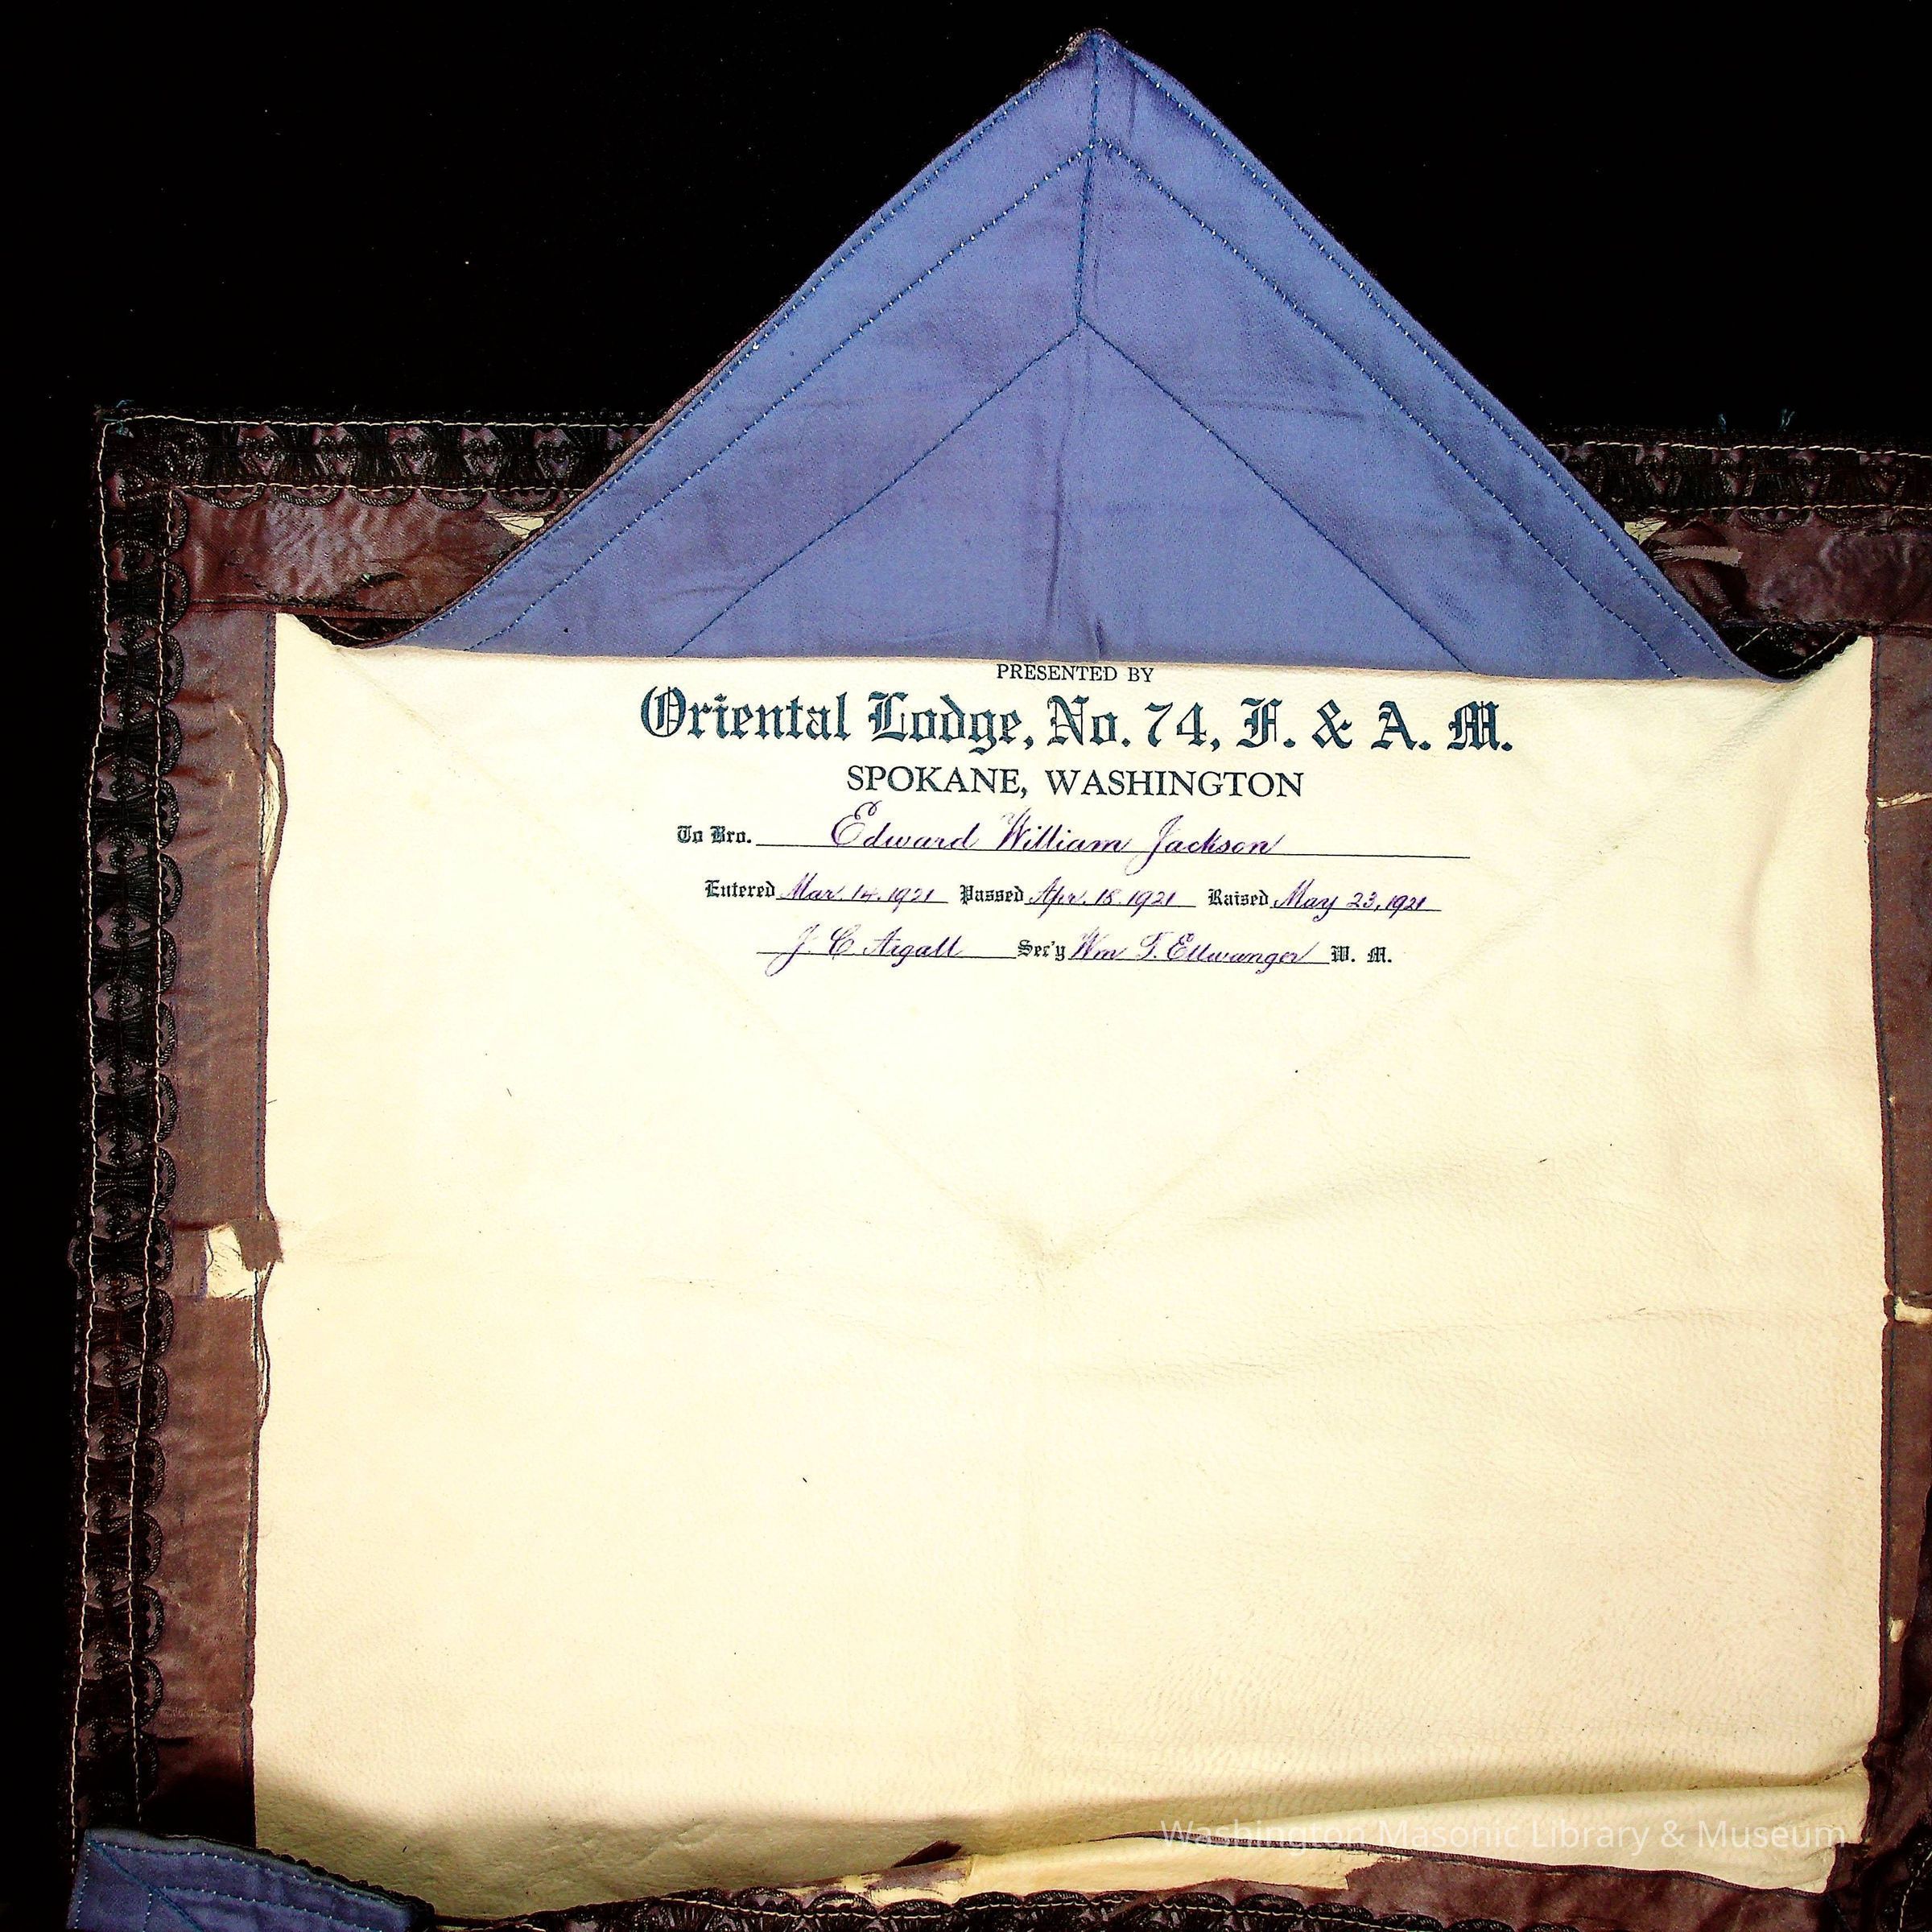 PRESENTED BY
Oriental Lodge, No. 74, F. & A. M.
SPOKANE, WASHINGTON
To Bro. Edward William Jackson
Entered Mar. 14. 1921 Passed Apr. 18. 1921 Raised May 23, 1921
J. C. Sec'y Wm T. Ellwanger W. M.
Washington Masonic Library & Museum